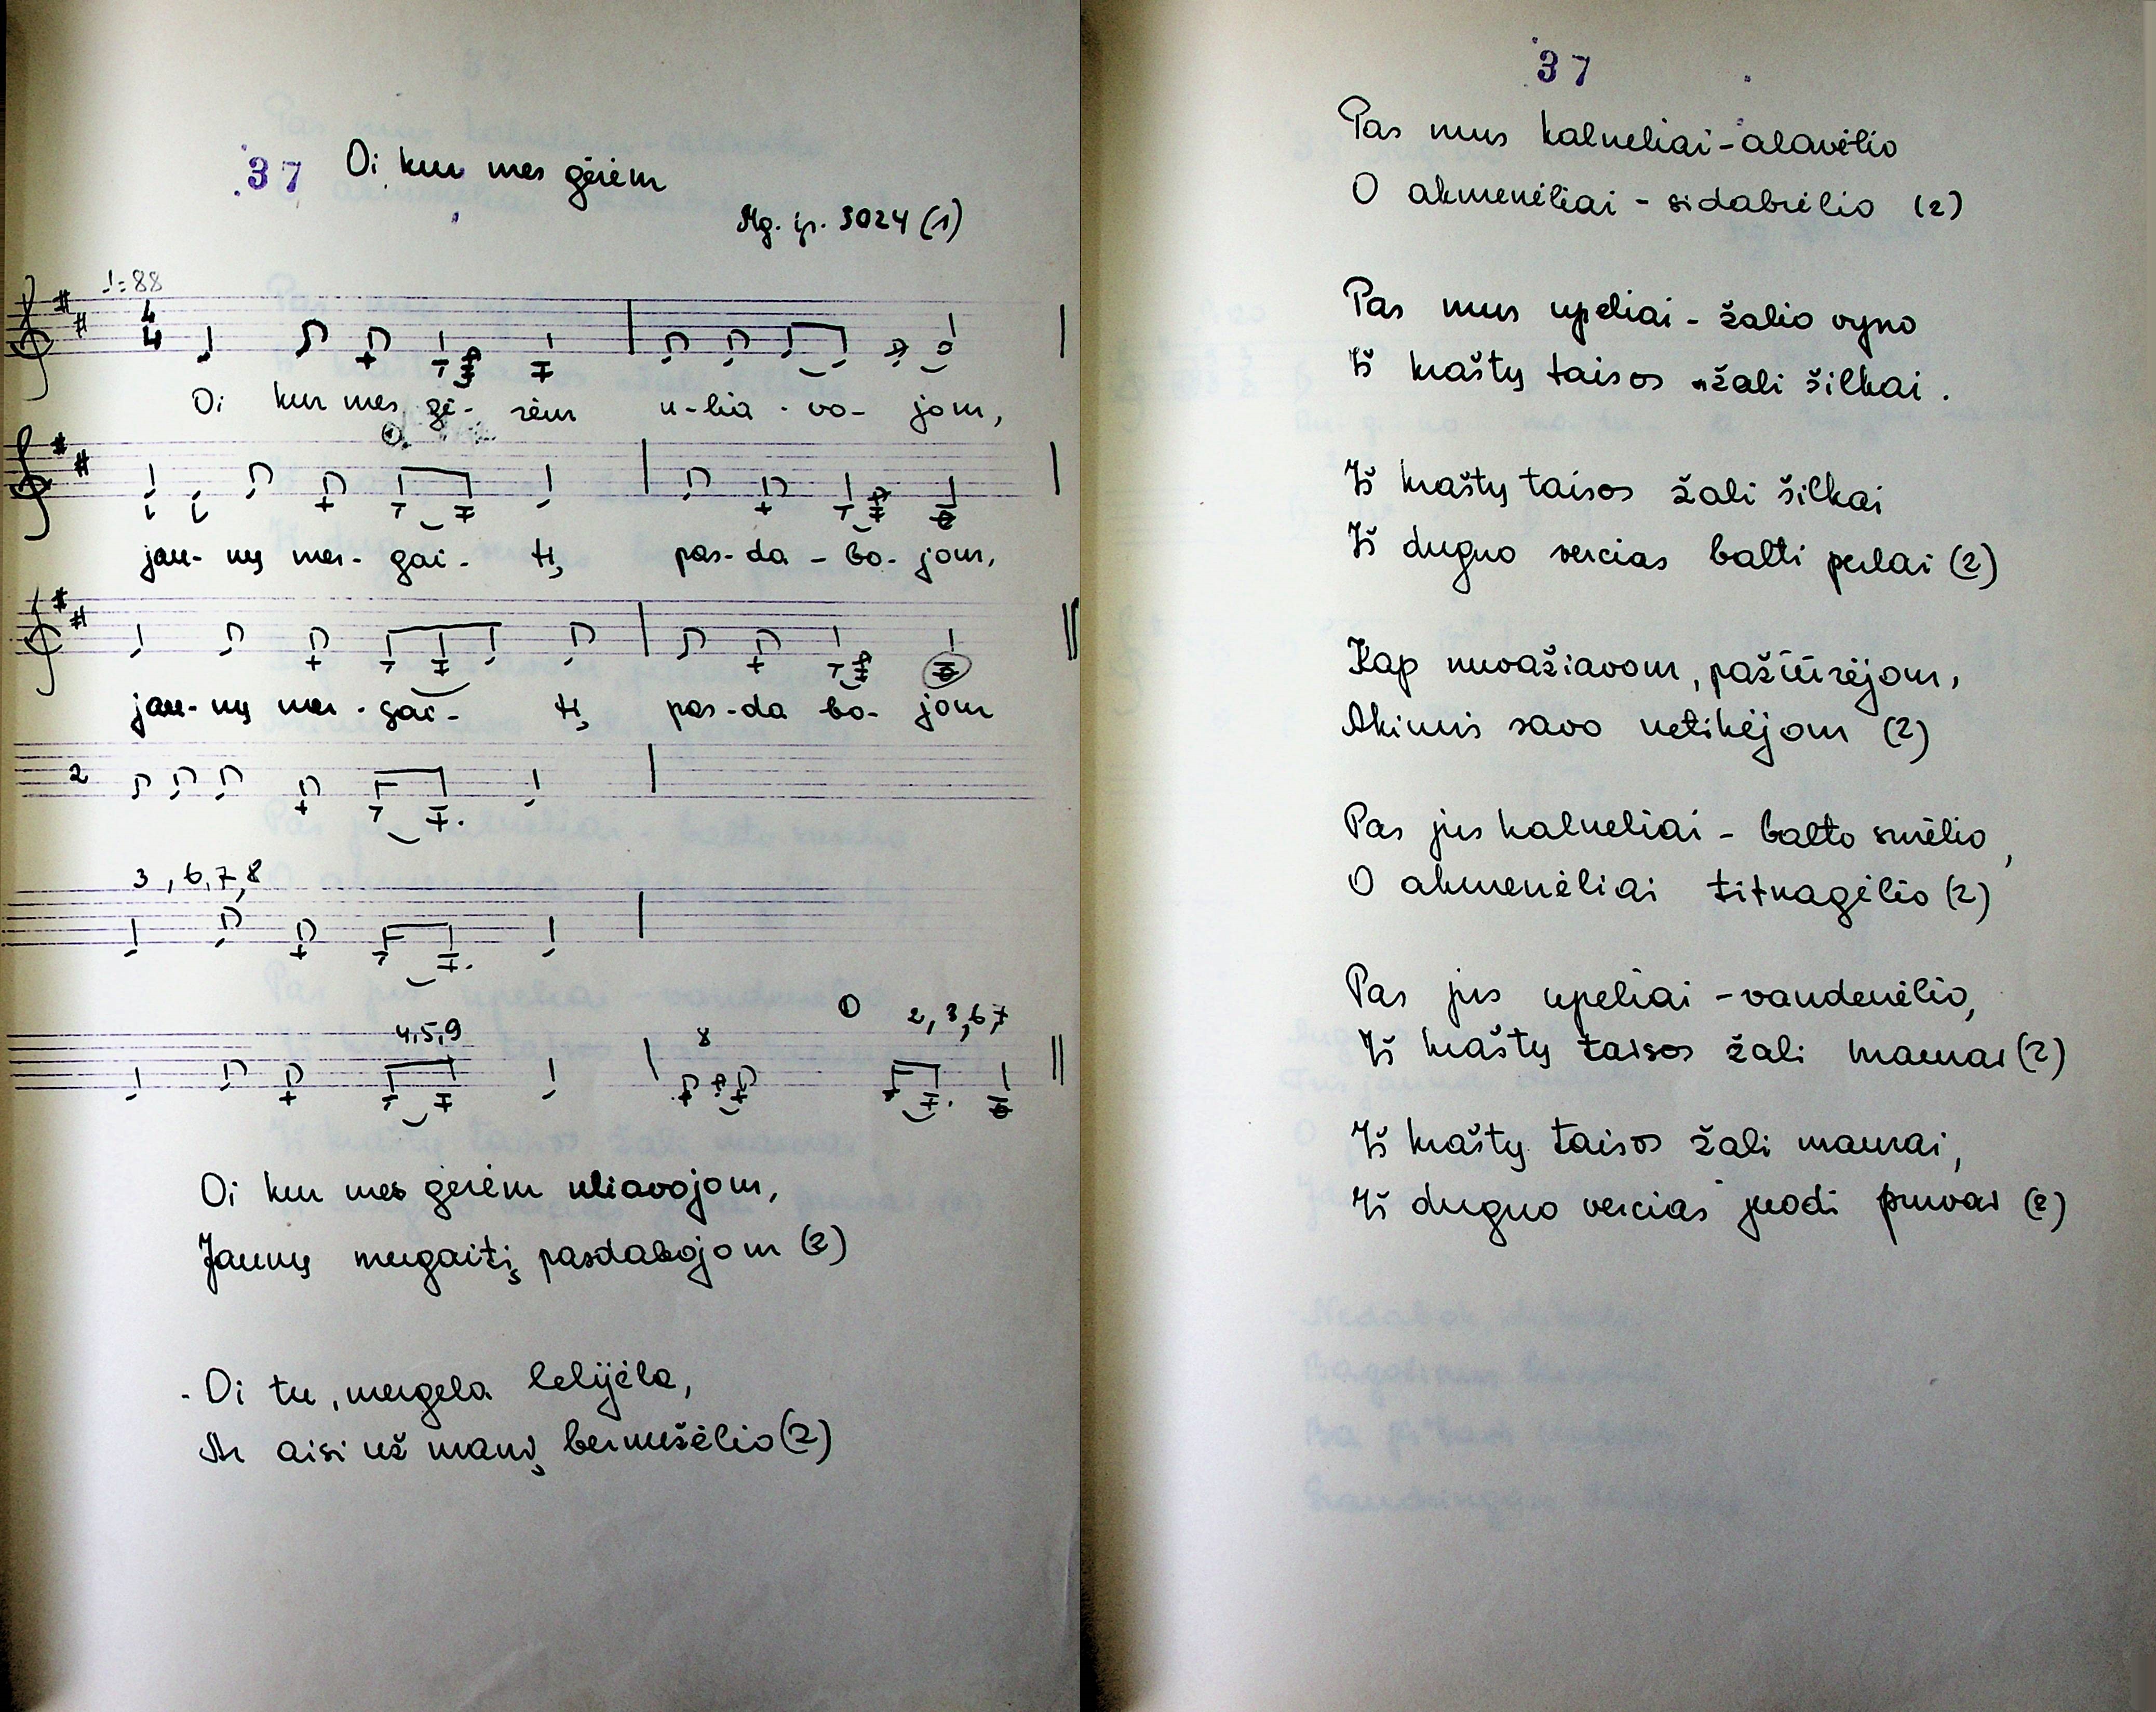 37 Oi kur mes gėrėm
Mg. įr. 3024 (1)
♩=88
4
4
Oi kur mes gė- rėm u-lia-vo- jom,
jau- nų mer- gai- tį pas-da-bo- jom,
jau-nų mer-gai- tį pas-da bo- jom
2
3, 6, 7, 8
4,5,9 8 2,3,6,7
Oi kur mes gėrėm uliavojom,
Jaunų mergaitį pasdabojom (2)
- Oi tu, mergela lelijėla,
Ar aisi už manį bernužėlio (2)
37
Pas mus kalneliai - alavėlio
O akmenėliai - sidabrėlio (2)
Pas mus upeliai - žalio vyno
Iš kraštų taisos žali šilkai.
Iš kraštų taisos žali šilkai
Iš dugno vercias balti perlai (2)
Kap nuvažiavom, pažiūrėjom,
Akimis savo netikėjom (2)
Pas jus kalneliai - balto smėlio,
O akmenėliai titnagėlio (2)
Pas jus upeliai - vandenėlio,
Iš kraštų taisos žali maurai (2)
Iš kraštų taisos žali maurai,
Iš dugno vercias juodi purvai (2)